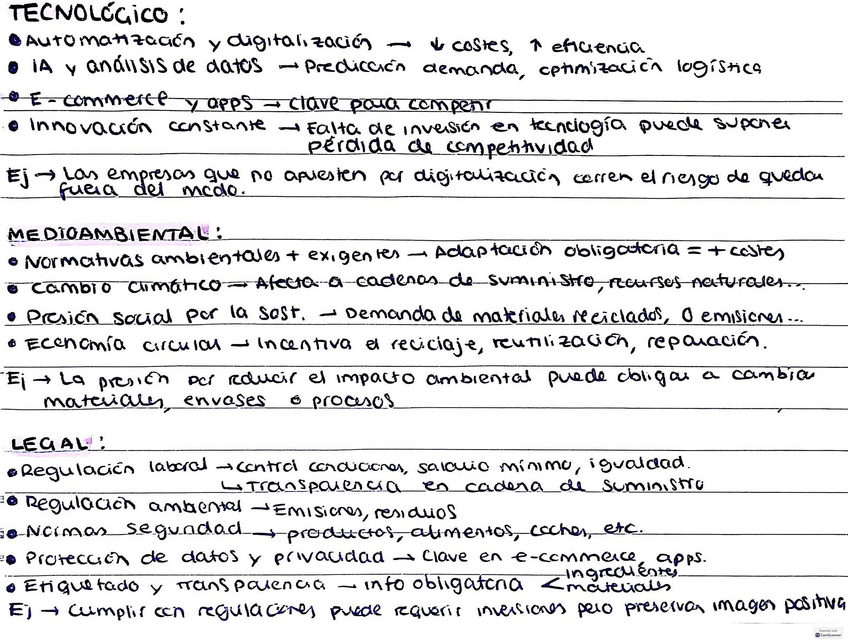 TECNOLÓGICO:
• Automatización y digitalización → ↓ costes, ↑ eficiencia
• IA y análisis de datos → Predicción demanda, optimización logística
• E-commerce y apps → clave para competir
• Innovación constante → Falta de inversión en tecnología puede suponer
pérdida de competitividad
Ej → Las empresas que no apuesten por digitalización corren el riesgo de quedar
fuera del mcdo.
MEDIOAMBIENTAL:
• Normativas ambientales + exigentes → Adaptación obligatoria = + costes
• Cambio climático → Afecta a cadenas de suministro, recursos naturales...
• Presión social por la sost. → Demanda de materiales reciclados, 0 emisiones...
• Economía circular → Incentiva el reciclaje, reutilización, reparación.
Ej → La presión por reducir el impacto ambiental puede obligar a cambiar
materiales, envases o procesos
LEGAL:
• Regulación laboral → control condiciones, salario mínimo, igualdad.
↳ Transparencia en cadena de suministro
• Regulación ambiental → Emisiones, residuos
• Normas seguridad → productos, alimentos, coches, etc.
• Protección de datos y privacidad → Clave en e-commerce, apps.
• Etiquetado y transparencia → info obligatoria < ingredientes
materiales
Ej → Cumplir con regulaciones puede requerir inversiones pero preservar imagen positiva
CamScanner